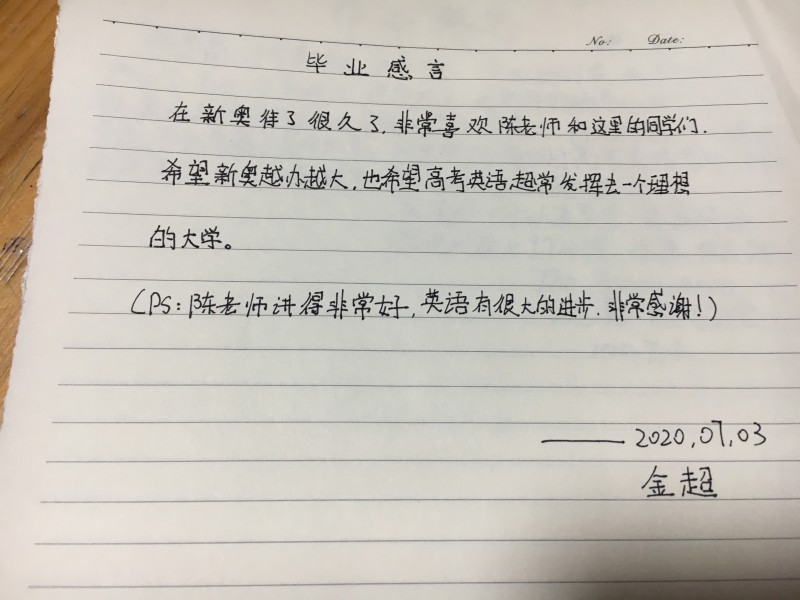 No: Date:
毕业感言
在新奥待了很久了,非常喜欢陈老师和这里的同学们.
希望新奥越办越大,也希望高考英语超常发挥去一个理想
的大学。
(PS:陈老师讲得非常好,英语有很大的进步.非常感谢!)
——2020,07,03
金超